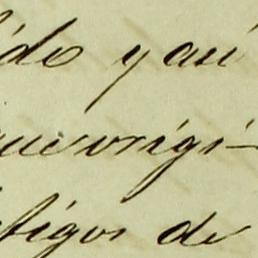 ido y asi
que origi-
tigos de